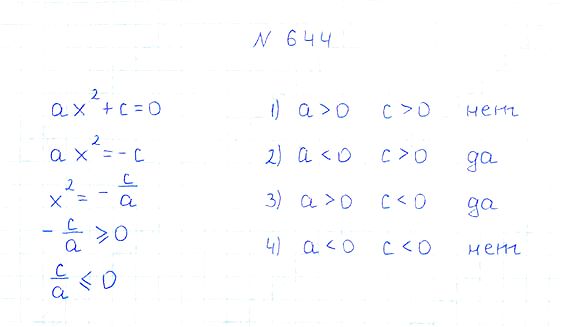 N 644
ax²+c=0
ax²=-c
x²=-c/a
-c/a ≥0
c/a ≤ 0
1) a>0 c>0 нет
2) a<0 c>0 да
3) a>0 c<0 да
4) a<0 c<0 нет